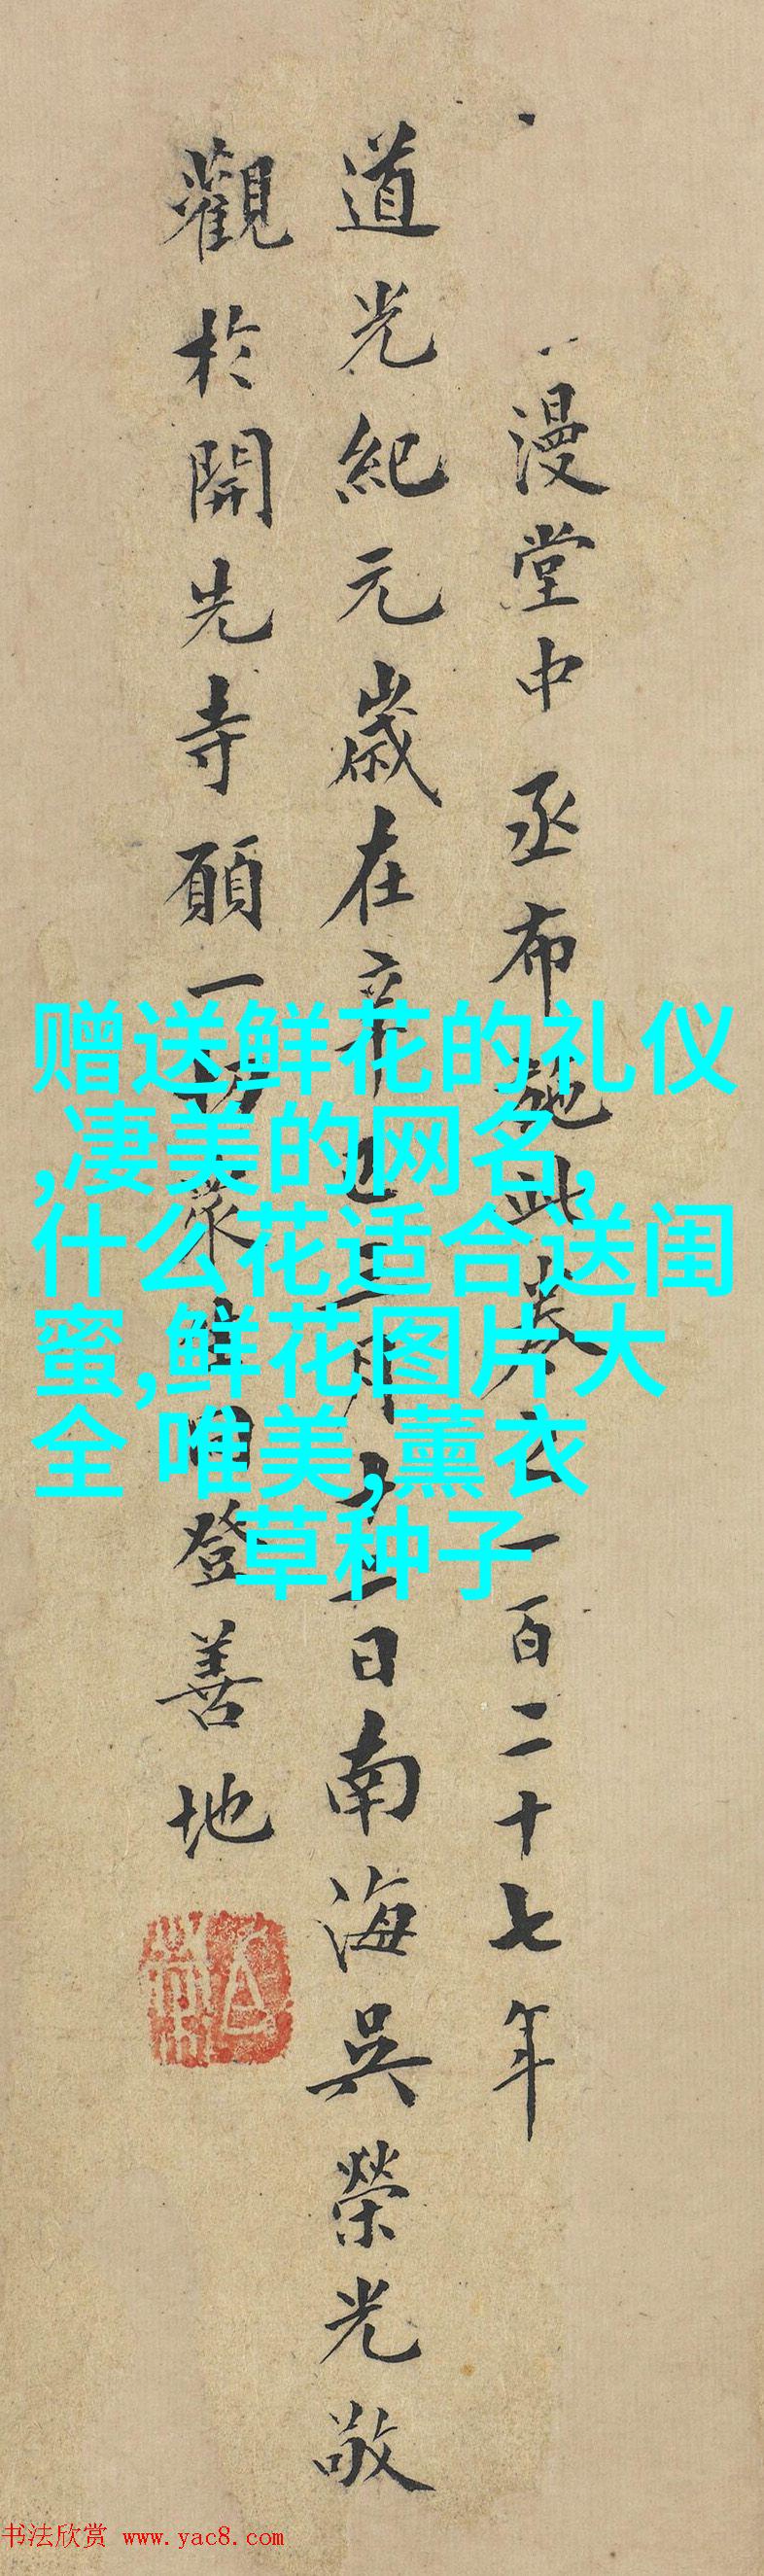 漫堂中丞布施此卷之一百二十七年
道光紀元歲在辛巳三月十五日南海吳榮光敬
觀於開先寺願一切眾生同登善地
赠送鲜花的礼仪
,凄美的网名,
什么花适合送闺
蜜,鲜花图片大
全 唯美,薰衣
草种子
书法欣赏 www.yac8.com